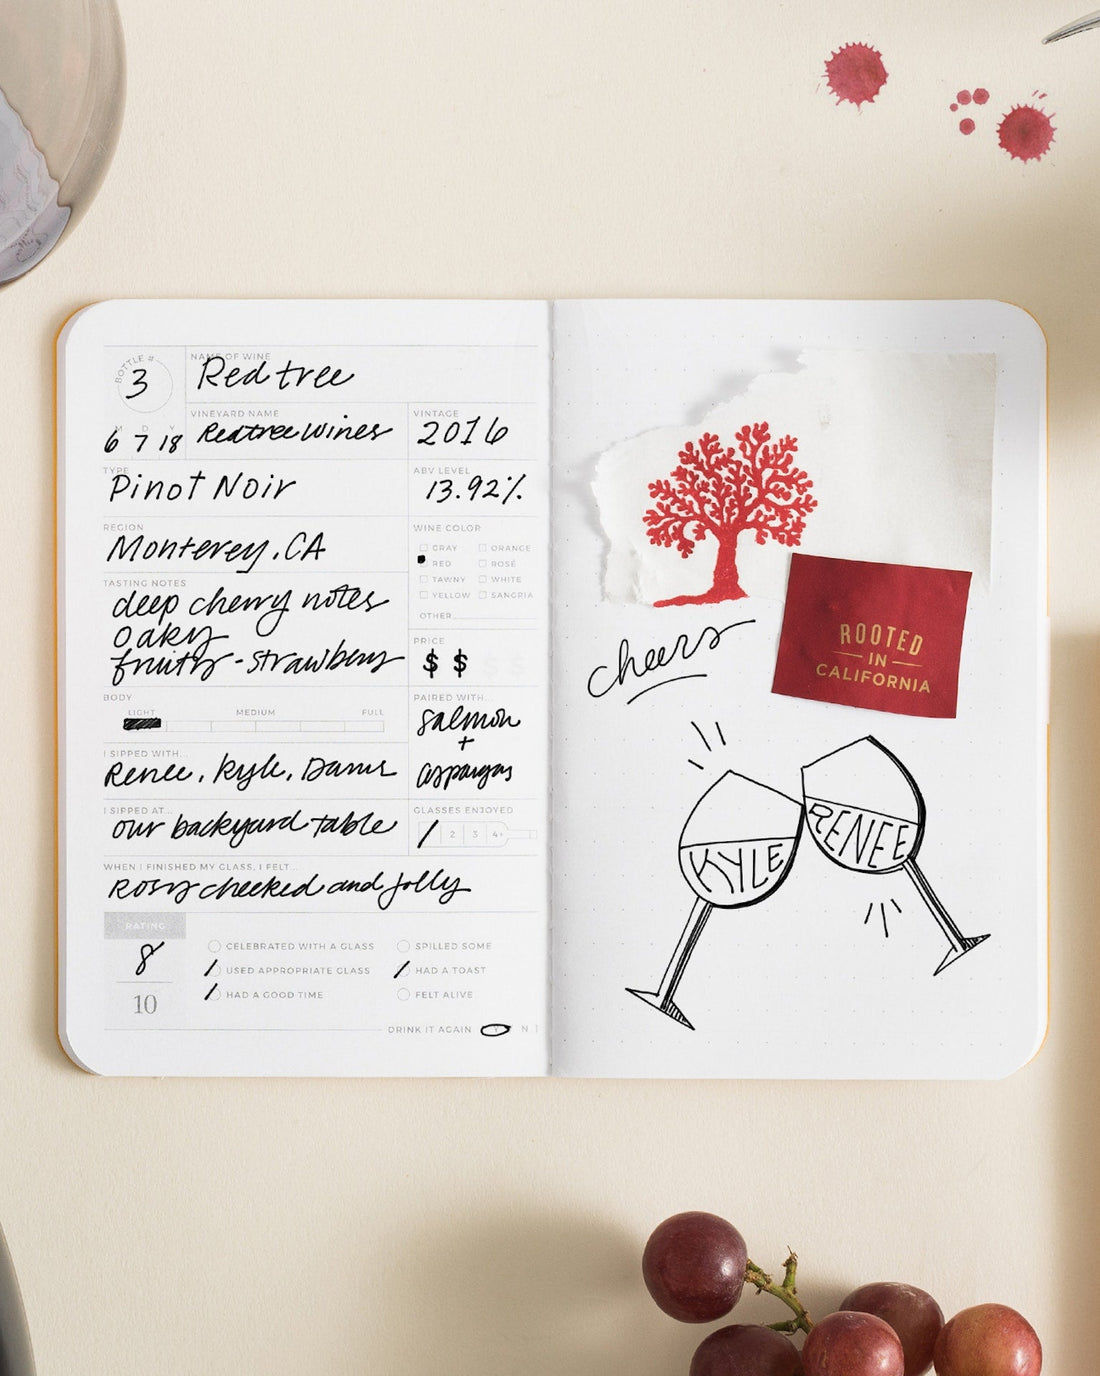 BOTTLE #
3
NAME OF WINE
Redtree
M D Y
6 7 18
VINEYARD NAME
Redtree Wines
VINTAGE
2016
TYPE
Pinot Noir
ABV LEVEL
13.92%
REGION
Monterey, CA
WINE COLOR
GRAY ORANGE
RED ROSÉ
TAWNY WHITE
YELLOW SANGRIA
OTHER
TASTING NOTES
deep cherry notes
oaky
fruity - strawberry
PRICE
$ $ $ $
BODY
LIGHT MEDIUM FULL
PAIRED WITH...
salmon
+
asparagus
I SIPPED WITH...
Renee, Kyle,
I SIPPED AT...
our backyard table
GLASSES ENJOYED
2 3 4+
WHEN I FINISHED MY GLASS, I FELT...
Rosy cheeked and jolly
RATING
8
10
CELEBRATED WITH A GLASS SPILLED SOME
USED APPROPRIATE GLASS HAD A TOAST
HAD A GOOD TIME FELT ALIVE
DRINK IT AGAIN Y N
ROOTED
IN
CALIFORNIA
cheers
KYLE
RENEE